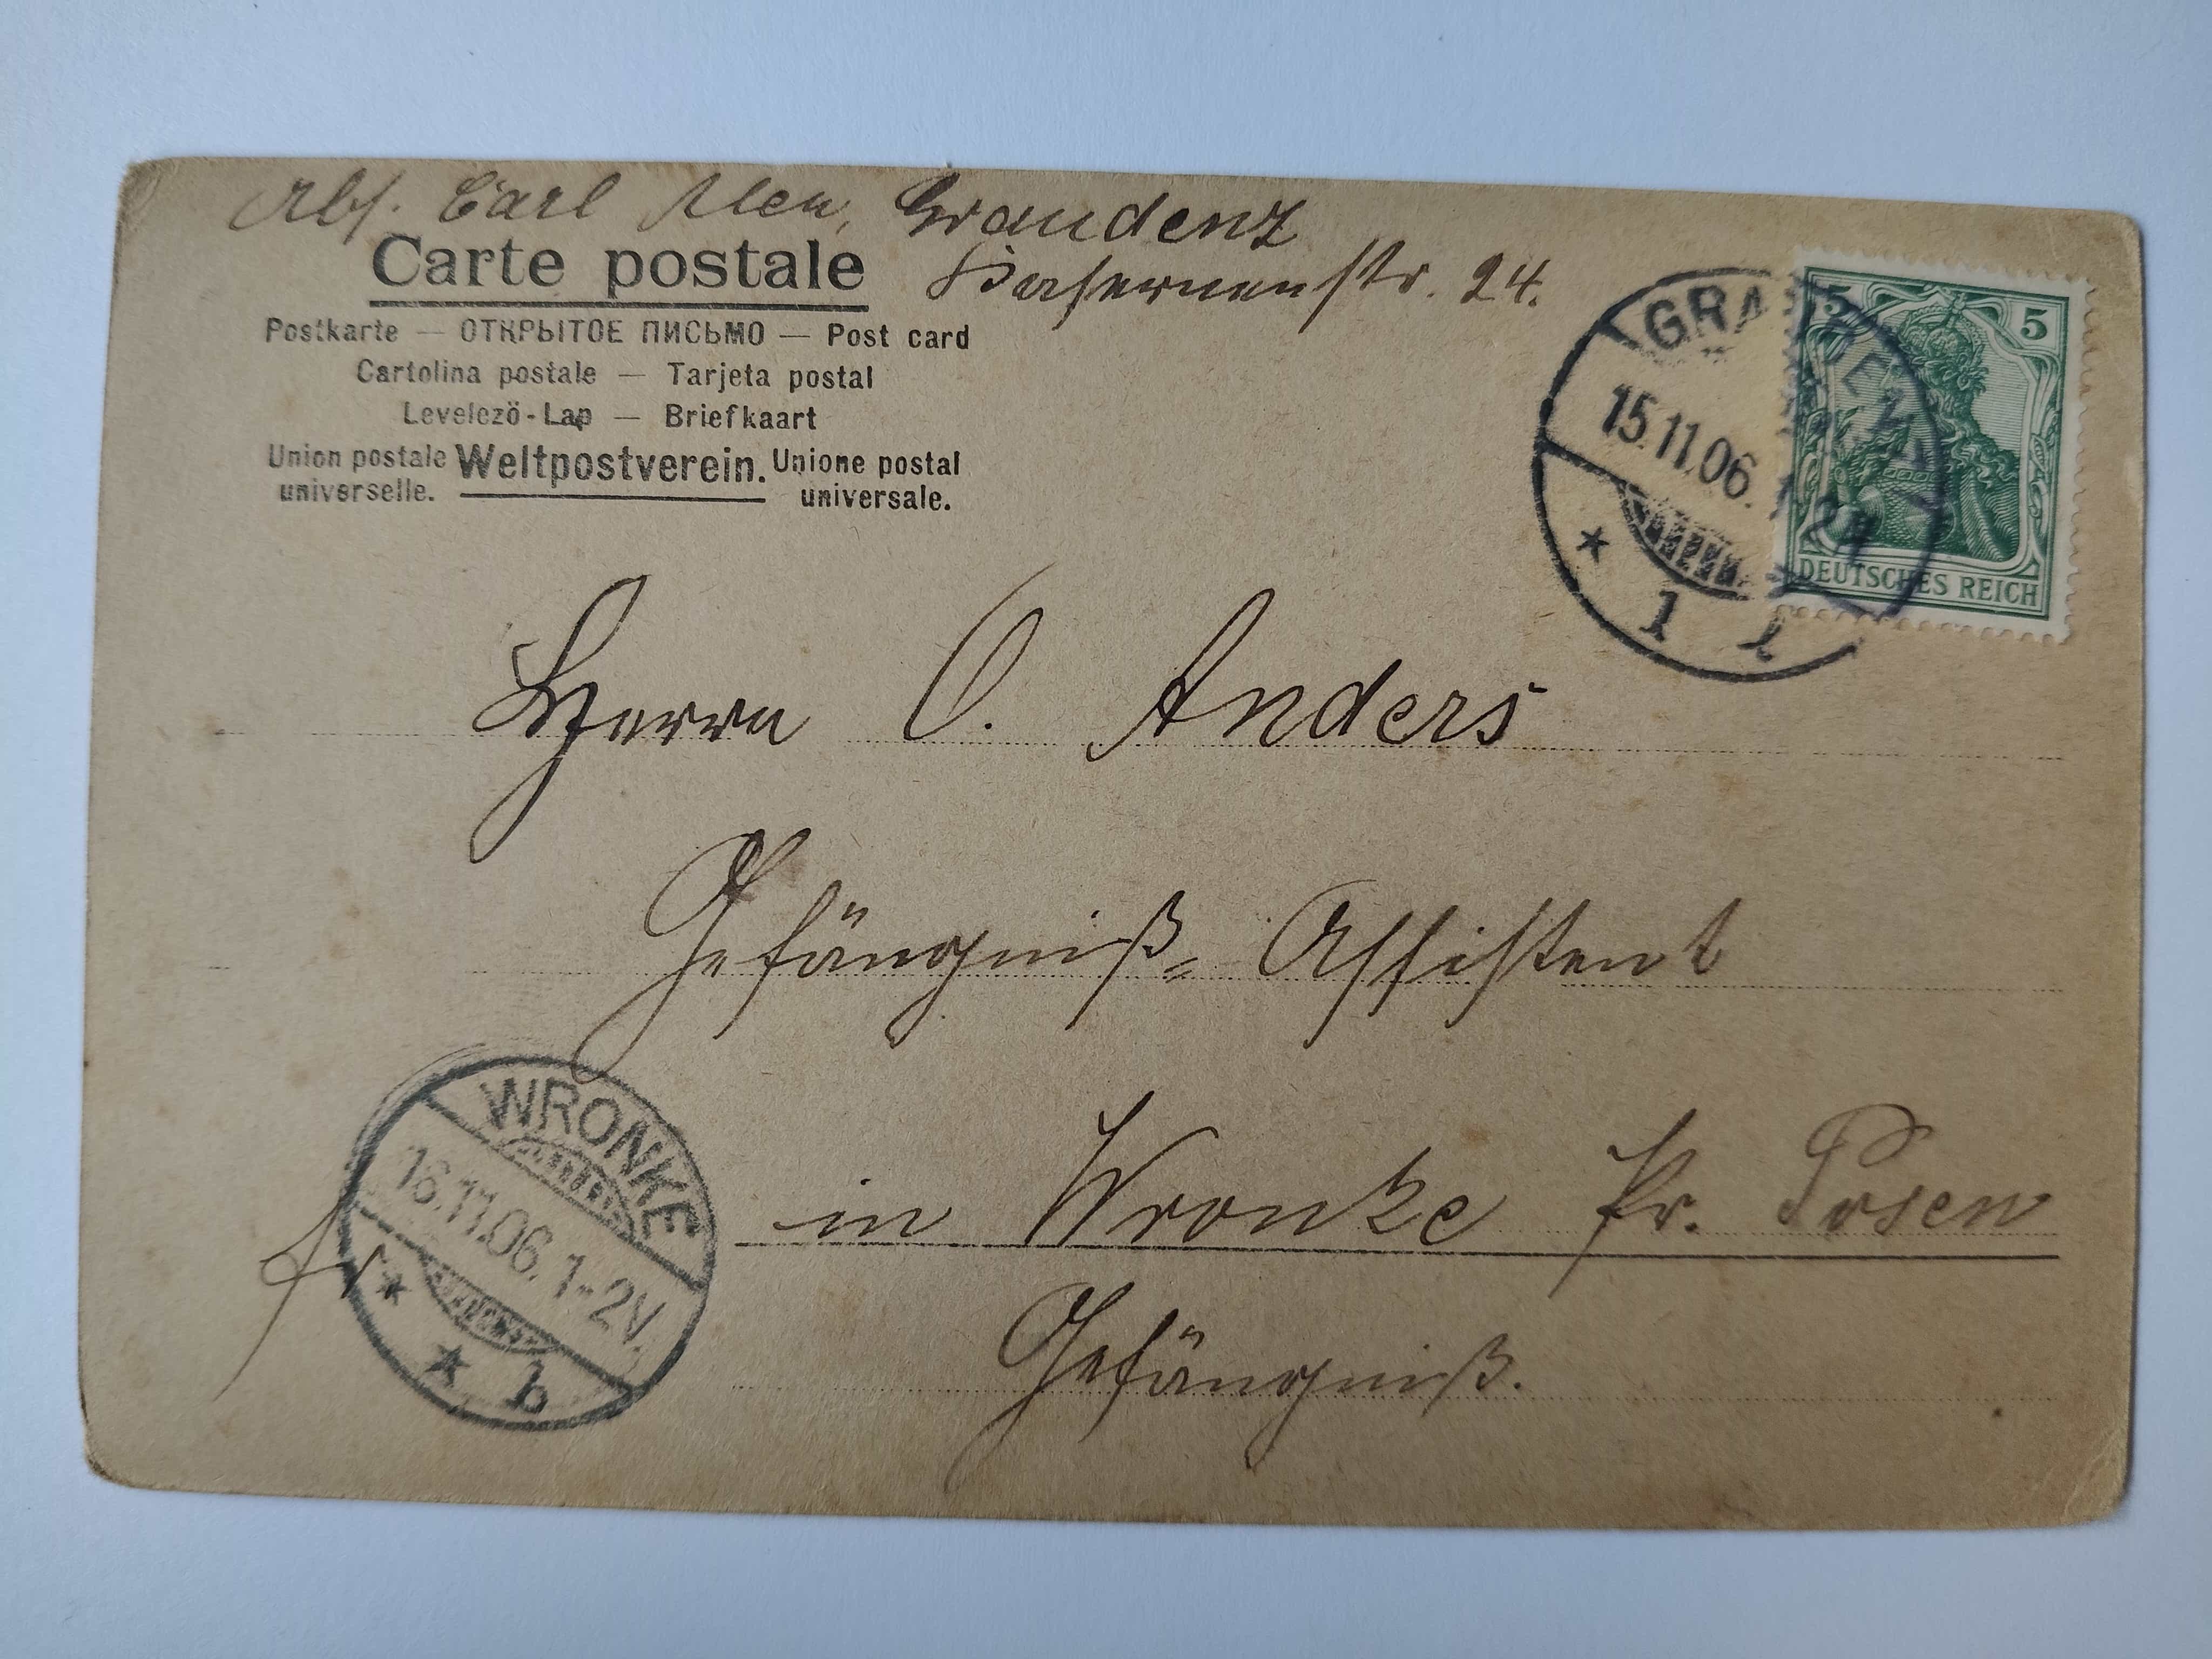 Abs. Carl Graudenz
Kasernenstr. 24.
Carte postale
Postkarte — ОТКРЫТОЕ ПИСЬМО — Post card
Cartolina postale — Tarjeta postal
Levelező-Lap — Briefkaart
Union postale universelle. Weltpostverein. Unione postal universale.
GRAUDENZ
15.11.06.
* 1 l
5 5
DEUTSCHES REICH
Herrn O. Anders
Gefängniß= Assistent
in Wronke Pr. Posen
Gefängniß.
WRONKE
16.11.06. 1-2V.
* * b